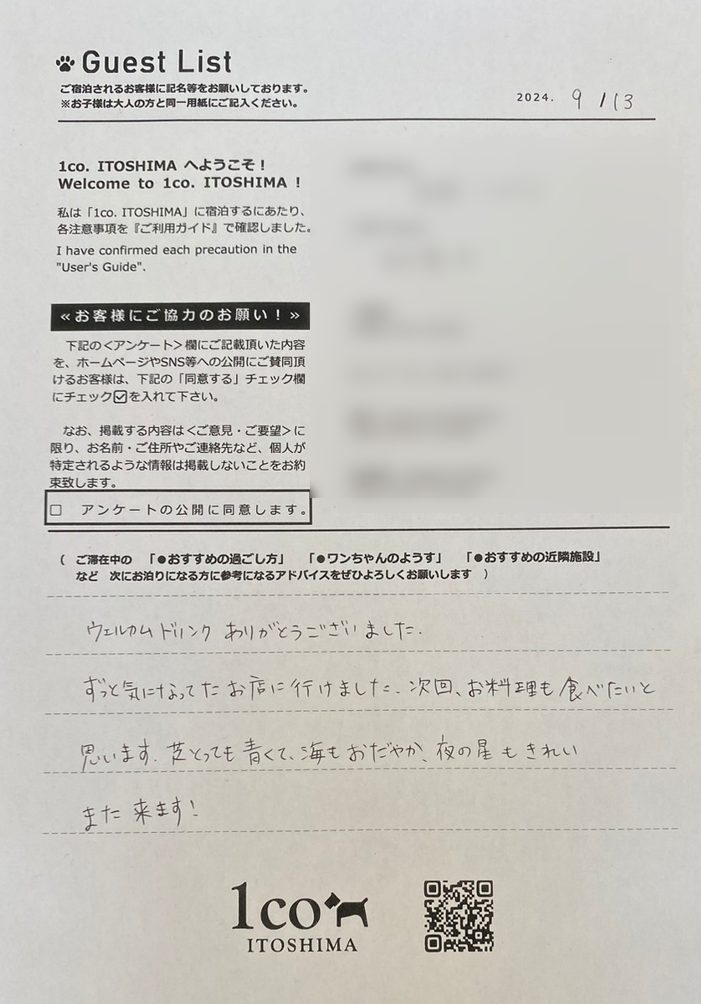 Guest List
ご宿泊されるお客様に記名等をお願いしております。
※お子様は大人の方と同一用紙にご記入ください。
2024. 9 / 13
1co. ITOSHIMA へようこそ！
Welcome to 1co. ITOSHIMA !
私は「1co. ITOSHIMA」に宿泊するにあたり、
各注意事項を『ご利用ガイド』で確認しました。
I have confirmed each precaution in the
"User's Guide".
≪お客様にご協力のお願い！≫
下記の＜アンケート＞欄にご記載頂いた内容
を、ホームページやSNS等への公開にご賛同頂
けるお客様は、下記の「同意する」チェック欄
にチェック☑を入れて下さい。
なお、掲載する内容は＜ご意見・ご要望＞に
限り、お名前・ご住所やご連絡先など、個人が
特定されるような情報は掲載しないことをお約
束致します。
□ アンケートの公開に同意します。
（ ご滞在中の 「●おすすめの過ごし方」 「●ワンちゃんのようす」 「●おすすめの近隣施設」
など 次にお泊りになる方に参考になるアドバイスをぜひよろしくお願いします ）
ウェルカムドリンク ありがとうございました.
ずっと気になってた お店に行けました. 次回、お料理も食べたいと
思います. 芝とっても青くて、海もおだやか、夜の星もきれい
また来ます!
1co
ITOSHIMA